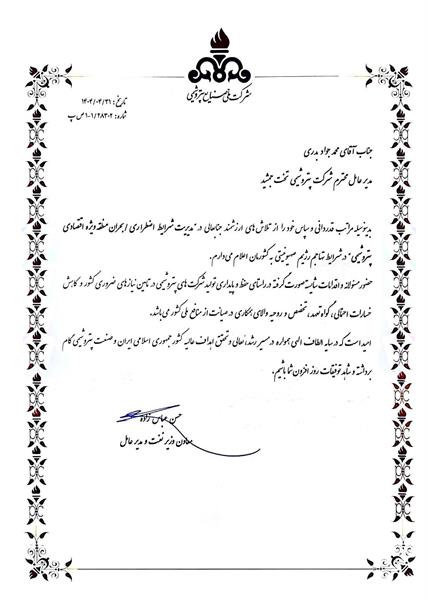 شرکت ملی صنایع پتروشیمی
تاریخ: ۱۴۰۴/۰۴/۳۱
شماره: ۱-۱/۲۸۳۰۲ ص پ
جناب آقای محمد جواد بدری
مدیر عامل محترم شرکت پتروشیمی تخت جمشید
بدینوسیله مراتب قدردانی و سپاس خود را از تلاش های ارزشمند جنابعالی در "مدیریت شرایط اضطراری / بحران منطقه ویژه اقتصادی
پتروشیمی" در شرایط تهاجم رژیم صهیونیستی به کشورمان اعلام می دارم.
حضور مسئولانه و اقدامات شایسته صورت گرفته در راستای حفظ و پایداری تولید شرکت های پتروشیمی در تامین نیازهای ضروری کشور و کاهش
خسارات احتمالی، گواه تعهد، تخصص و روحیه والای همکاری در صیانت از منافع ملی کشور می باشد.
امید است که در سایه الطاف الهی همواره در مسیر رشد، تعالی و تحقق اهداف عالیه کشور جمهوری اسلامی ایران و صنعت پتروشیمی گام
برداشته و شاهد توفیقات روز افزون شما باشیم.
حسن عباس زاده
معاون وزیر نفت و مدیر عامل